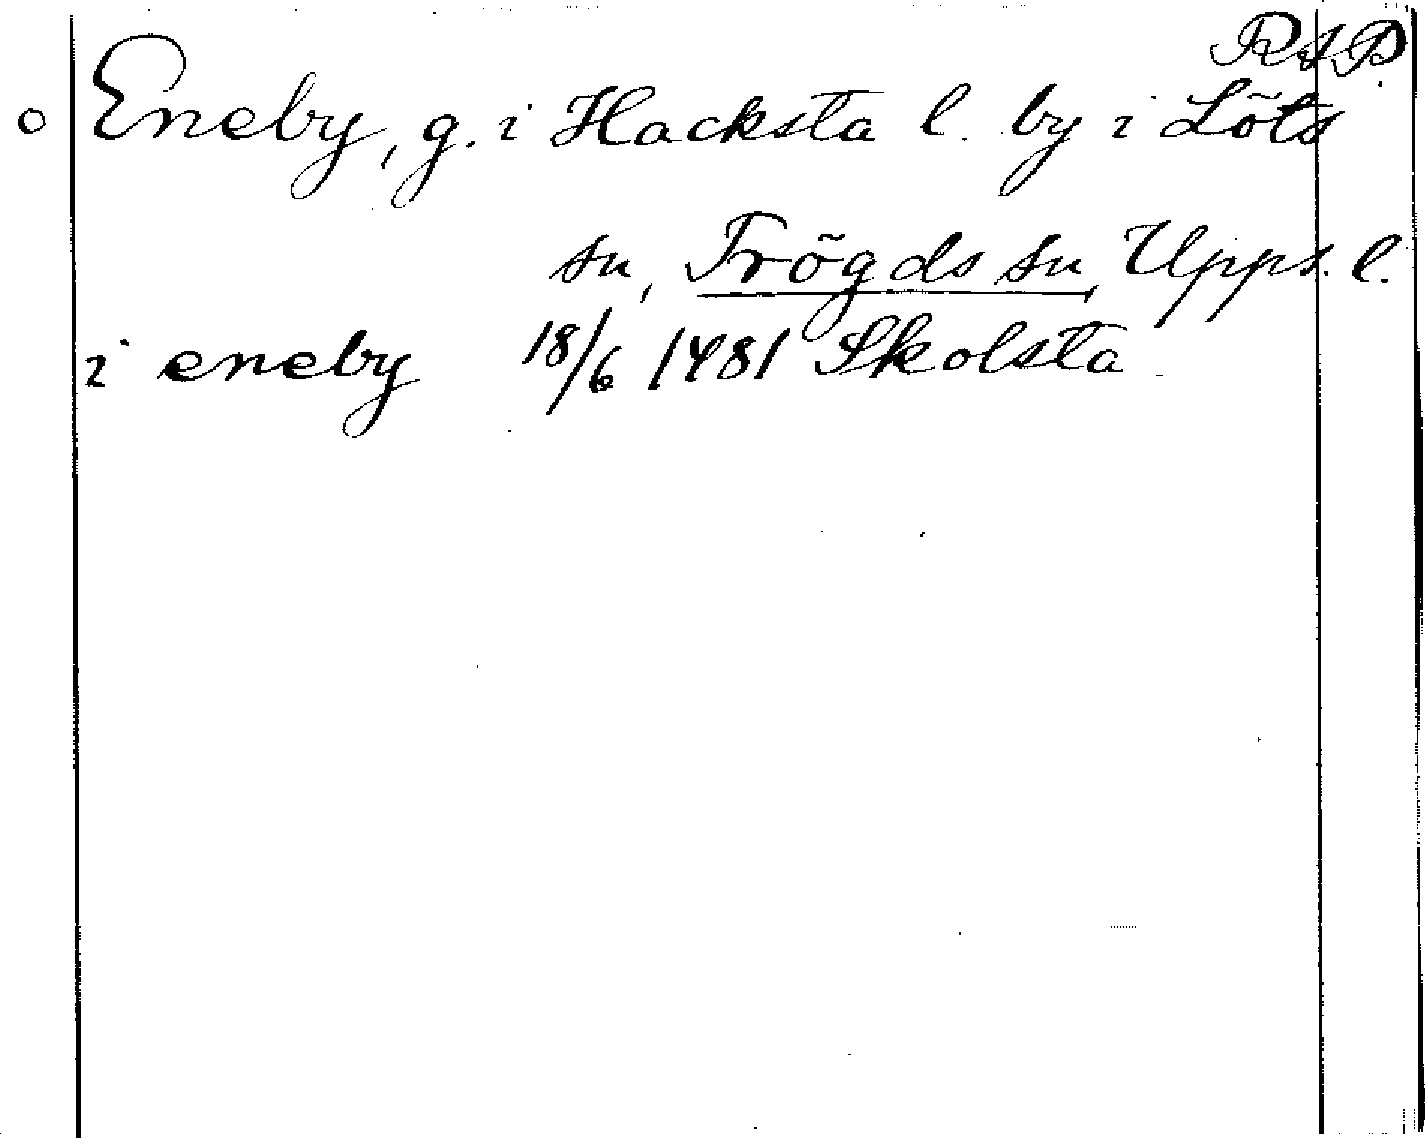 RAP
o Eneby, g. i Hacksta l. by i Löts
sn, Trögds hu, Upps. l.
i eneby 18/6 1481 Skolsta